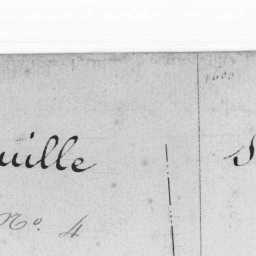 1600
uille S
No. 4